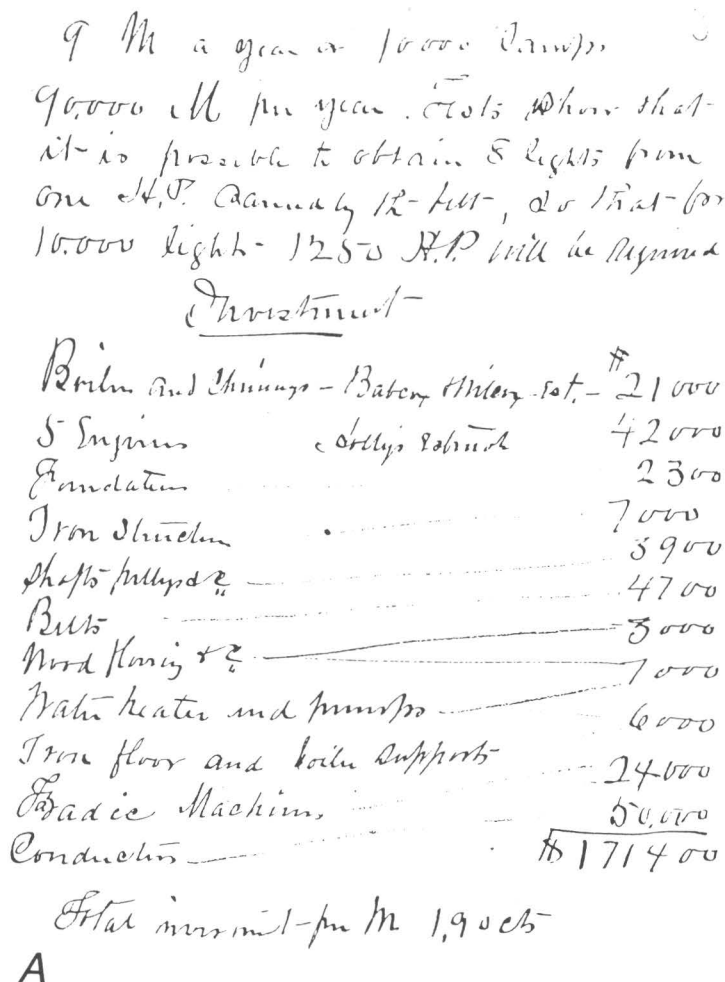 9 M a year or 10000 Lamps.
90,000 M per year. Tests show that
it is possible to obtain 8 lights from
one H.P. carried by the belt, so that for
10.000 lights 1250 H.P. will be required
Investment
Boilers and Chimneys - Babcox & Wilcox est. - $21000
5 Engines estimate 42000
Foundations 2300
Iron Structure 7000
Shafts pullys &c 3900
Belts 4700
Wood flooring &c 3000
Water heater and pumps 7000
Iron floor and boiler supports 6000
Faradic Machines 24000
Conductors 50,000
$171400
Total investment per M 1,90 cts
A